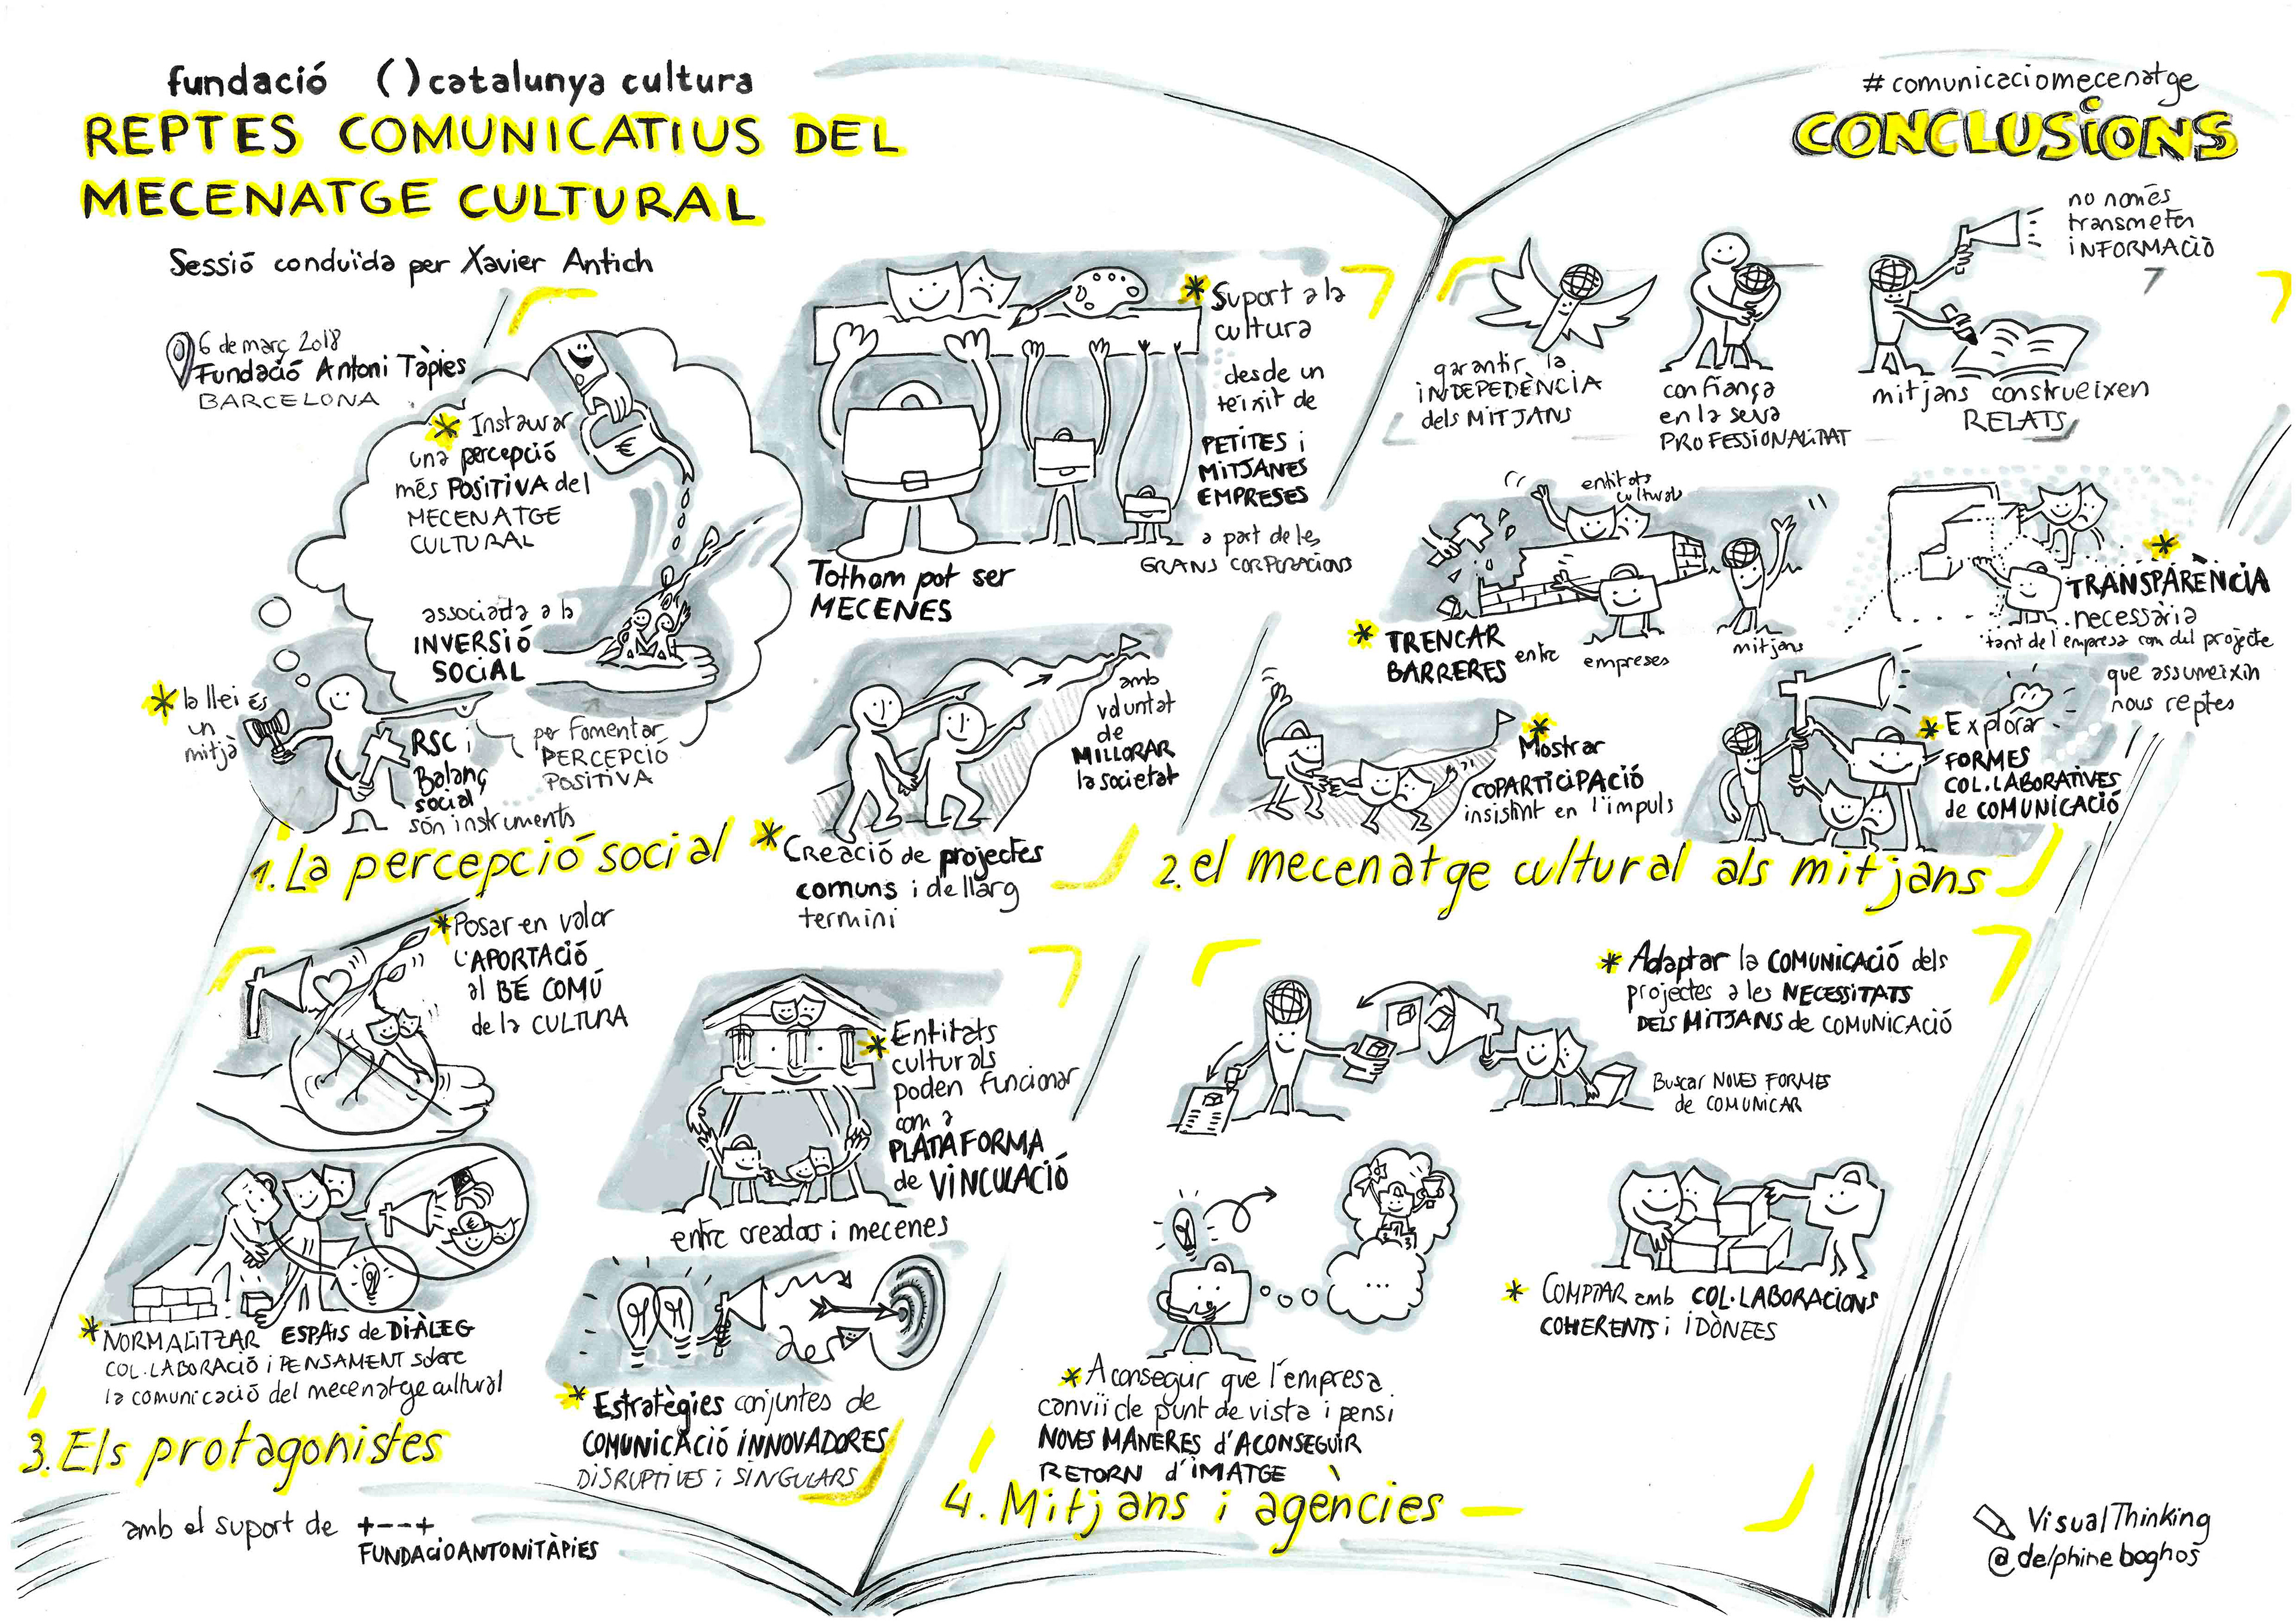 fundació ( ) catalunya cultura
REPTES COMUNICATIUS DEL
MECENATGE CULTURAL
Sessió conduïda per Xavier Antich
6 de març 2018
Fundació Antoni Tàpies
BARCELONA
# comunicaciomecenatge
CONCLUSIONS
* Instaurar
una percepció
més POSITIVA del
MECENATGE
CULTURAL
€
associada a la
INVERSIÓ
SOCIAL
* la llei és
un
mitjà
RSC i
Balanç
social
són instruments
per fomentar
PERCEPCIÓ
POSITIVA
* Suport a la
cultura
desde un
teixit de
PETITES i
MITJANES
EMPRESES
a part de les
GRANS CORPORACIONS
Tothom pot ser
MECENES
amb
voluntat
de
MILLORAR
la societat
* Creació de projectes
comuns i de llarg
termini
1. La percepció social
garantir la
INDEPEDÈNCIA
dels MITJANS
confiança
en la seva
PROFESSIONALITAT
no només
transmeten
INFORMACIÓ
mitjans construeixen
RELATS
entitats
culturals
* TRENCAR
BARRERES entre
empreses
mitjans
* TRANSPARÈNCIA
necessària
tant de l'empresa com del projecte
* Mostrar
COPARTICIPACIÓ
insistint en l'impuls
que assumeixin
nous reptes
* Explorar
FORMES
COL.LABORATIVES
de COMUNICACIÓ
2. el mecenatge cultural als mitjans
* Posar en valor
L'APORTACIÓ
al BÉ COMÚ
de la CULTURA
* Entitats
culturals
poden funcionar
com a
PLATAFORMA
de VINCULACIÓ
entre creadors i mecenes
€
* NORMALITZAR ESPAIS de DIÀLEG
COL.LABORACIÓ i PENSAMENT sobre
la comunicació del mecenatge cultural
* Estratègies conjuntes de
COMUNICACIÓ INNOVADORES
DISRUPTIVES i SINGULARS
3. Els protagonistes
* Adaptar la COMUNICACIÓ dels
projectes a les NECESSITATS
DELS MITJANS de COMUNICACIÓ
Buscar NOVES FORMES
de COMUNICAR
...
* Aconseguir que l'empresa
canvïi de punt de vista i pensi
NOVES MANERES d'ACONSEGUIR
RETORN d'IMATGE
* COMPTAR amb COL·LABORACIONS
COHERENTS i IDÒNEES
4. Mitjans i agències
amb el suport de +--+
FUNDACIOANTONITÀPIES
VisualThinking
@delphineboghos